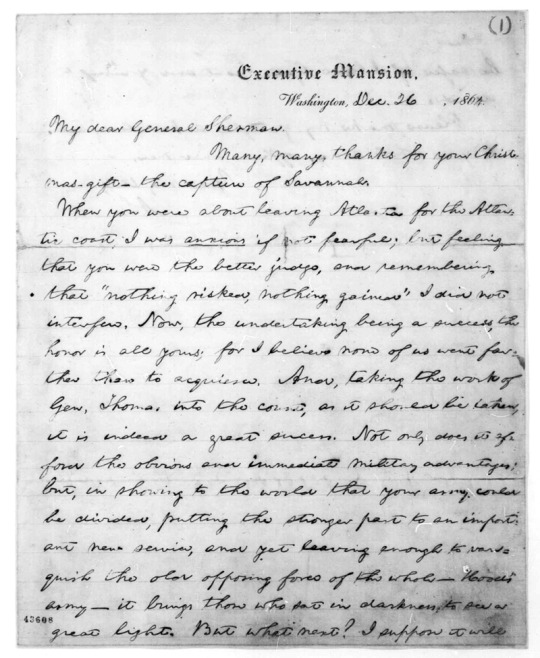 (1)
Executive Mansion,
Washington, Dec. 26, 1864.
My dear General Sherman.
Many, many, thanks for your Christ-
mas-gift — the capture of Savannah.
When you were about leaving Atlanta for the Atlan-
tic coast, I was anxious, if not fearful; but feeling
that you were the better judge, and remembering
that "nothing risked, nothing gained" I did not
interfere. Now, the undertaking being a success, the
honor is all yours; for I believe none of us went far-
ther than to acquiesce. And, taking the work of
Gen. Thomas into the count, as it should be taken,
it is indeed a great success. Not only does it af-
ford the obvious and immediate military advantages;
but, in showing to the world that your army could
be divided, putting the stronger part to an import-
ant new service, and yet leaving enough to van-
quish the old opposing force of the whole — Hood's
army — it brings those who sat in darkness, to see a
great light. But what next? I suppose it will
43608